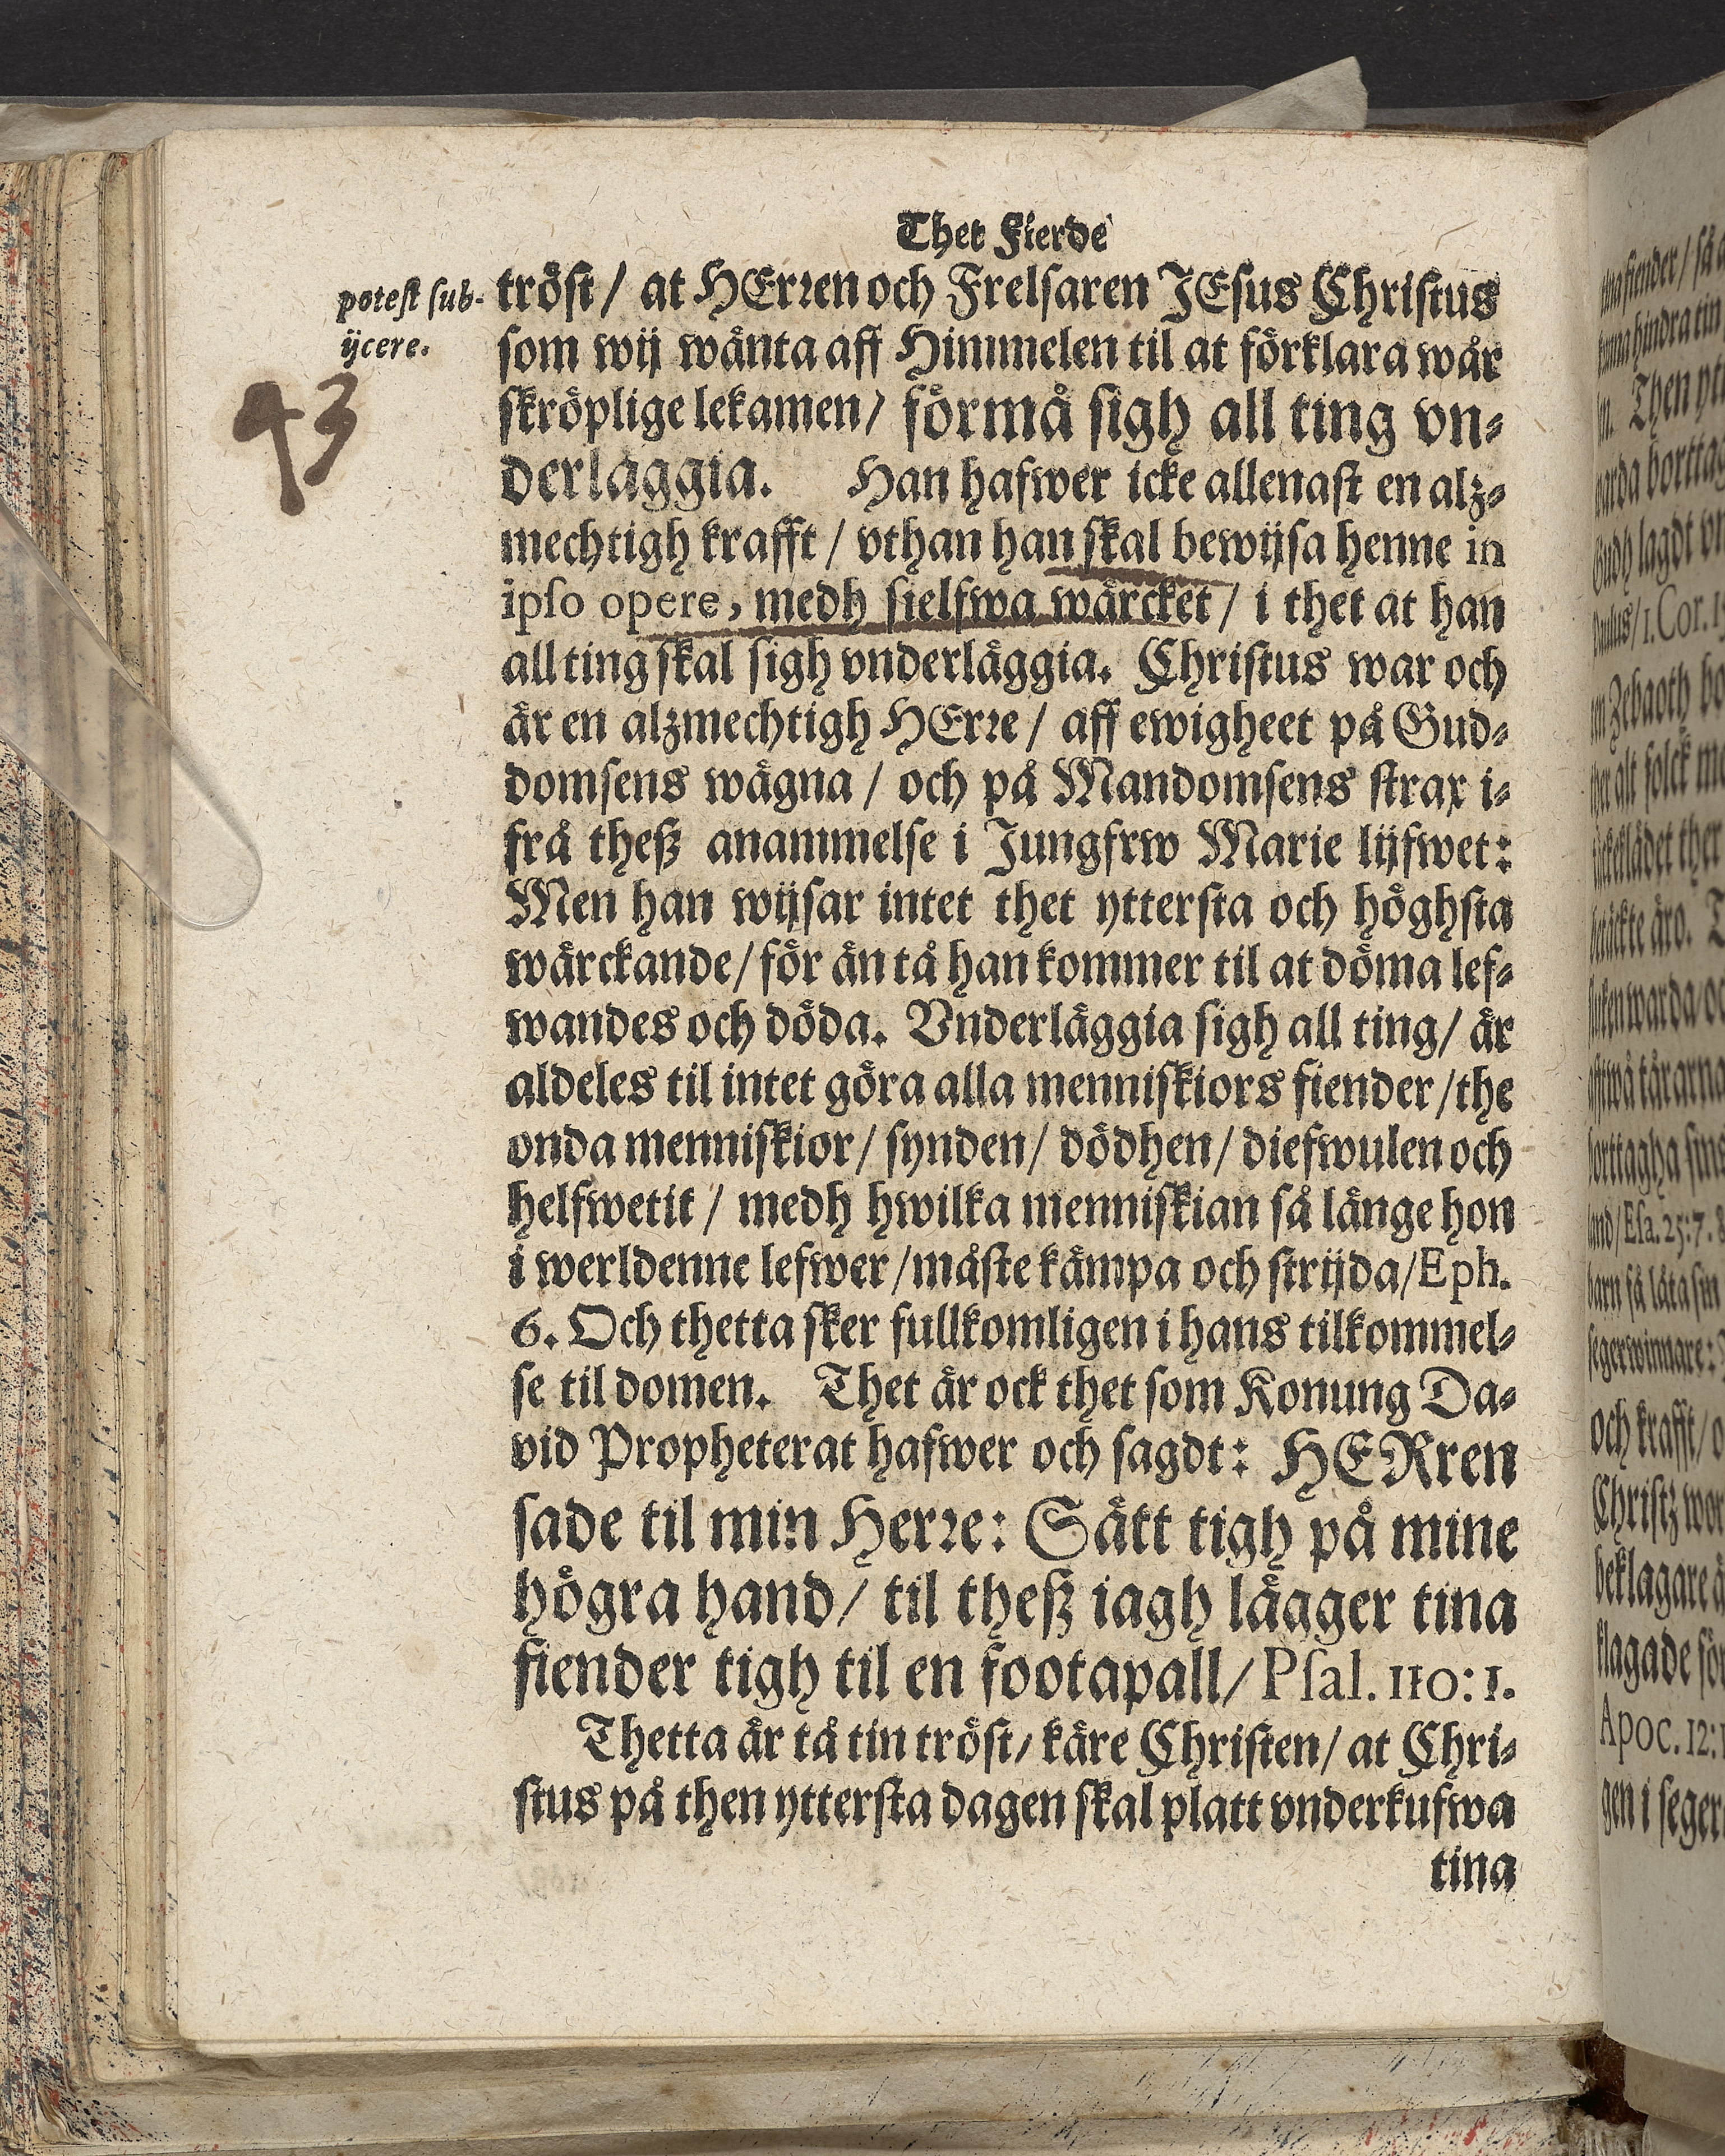 Thet Fierde
potest sub-
ijcere.
43
tröst / at HErren och Frelsaren JEsus Christus
som wij wänta aff Himmelen til at förklara wår
skröplige lekamen / förmå sigh all ting vn-
derläggia. Han hafwer icke allenast en alz-
mechtigh krafft / vthan han skal bewijsa henne in
ipso opere, medh sielfwa wärcket / i thet at han
all ting skal sigh vnderläggia. Christus war och
är en alzmechtigh HErre / aff ewigheet på Gud-
domsens wägna / och på Mandomsens strax i-
frå theß anammelse i Jungfrw Marie lijfwet:
Men han wijsar intet thet yttersta och höghsta
wärckande / för än tå han kommer til at döma lef-
wandes och döda. Vnderläggia sigh all ting / är
aldeles til intet göra alla menniskiors fiender / the
onda menniskior / synden / dödhen / diefwulen och
helfwetit / medh hwilka menniskian så länge hon
i werldenne lefwer / måste kämpa och strijda / Eph.
6. Och thetta sker fullkomligen i hans tilkommel-
se til domen. Thet är ock thet som Konung Da-
vid Propheterat hafwer och sagdt: HERren
sade til min Herre: Sätt tigh på mine
högra hand / til theß iagh lägger tina
fiender tigh til en footapall / Psal. 110: 1.
Thetta är tå tin tröst / käre Christen / at Chri-
stus på then yttersta dagen skal platt vnderkufwa
tina